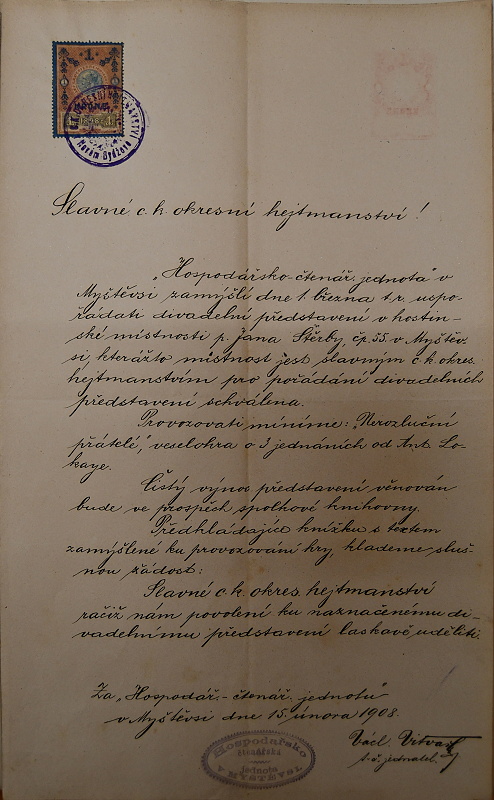 1
HEJTMANSTVÍ
Novém Bydžově
Slavné c. k. okresní hejtmanství!
„Hospodářsko-čtenář. jednota“ v
Myštěvsi zamýšlí dne 1. března t. r. uspo-
řádati divadelní představení v hostin-
ské místnosti p. Jana Štěrby, čp. 55. v Myštěv-
si, kterážto místnost jest slavným c. k. okres.
hejtmanstvím pro pořádání divadelních
představení schválena.
Provozovati míníme: „Nerozluční
přátelé,“ veselohra o 3 jednáních od Ant. Lo-
kaye.
Čistý výnos představení věnován
bude ve prospěch spolkové knihovny.
Předkládajíce knížku s textem
zamýšlené ku provozování hry, klademe sluš-
nou žádost:
Slavné c. k. okres. hejtmanství
račiž nám povolení ku naznačenému di-
vadelnímu představení laskavě uděliti.
Za „Hospodář.- čtenář. jednotu“
v Myštěvsi dne 15. února 1908.
Hospodářsko
Čtenářská
Jednota
v MYŠTĚVSI.
Václ. Vitvar
t. č. jednatel.